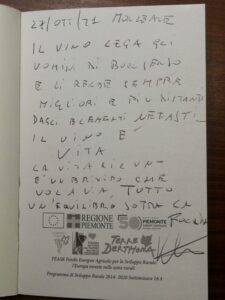 27/OTT/21 MONLEALE
IL VINO LEGA GLI
UOMINI DI BUON SENSO
E LI RENDE SEMPRE
MIGLIORI E PIÙ DISTANTI
DAGLI ELEMENTI NEFASTI.
IL VINO È
VITA
LA VITA È UN
CHE
VOLA VIA. TUTTO
UN'EQUILIBRIO SOPRA LA
FOLLIA
REGIONE
PIEMONTE
PIEMONTE
TERRE
DERTHONA
FEASR Fondo Europeo Agricolo per lo Sviluppo Rurale
l'Europa investe nelle zone rurali
Programma di Sviluppo Rurale 2014-2020 Sottomisura 16.4